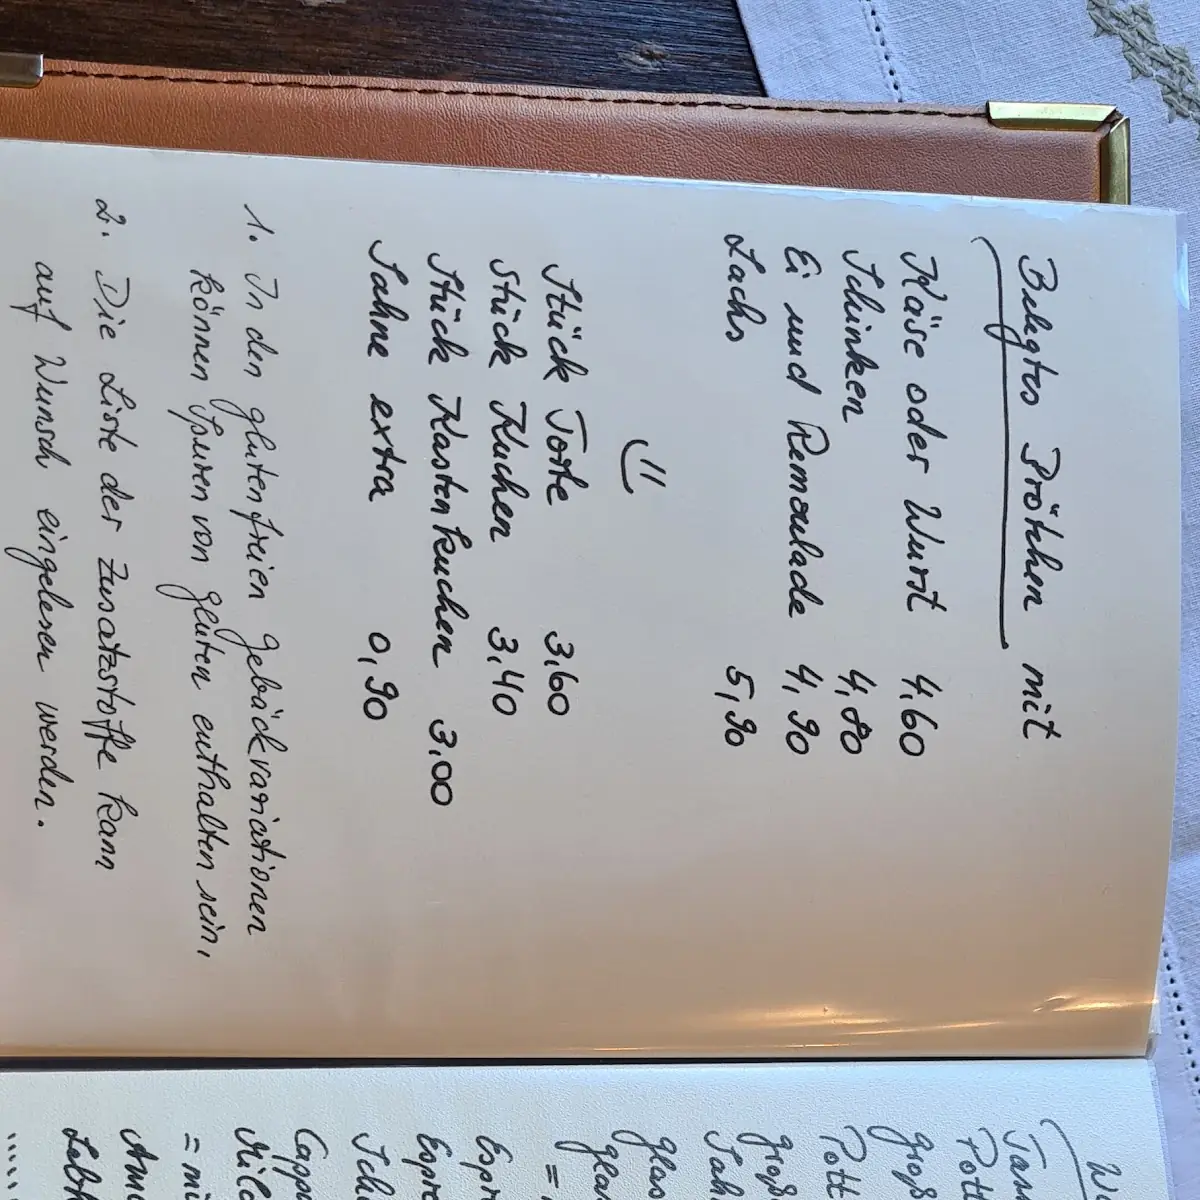 Belegtes Brötchen mit
Käse oder Wurst 4,60
Schinken 4,80
Ei und Remoulade 4,90
Lachs 5,90
Stück Torte 3,60
Stück Kuchen 3,40
Stück Kastenkuchen 3,00
Sahne extra 0,90
1. In den glutenfreien Gebäckvariationen
können Spuren von Gluten enthalten sein,
2. Die Liste der Zusatzstoffe kann
auf Wunsch eingelesen werden.
W
Tass
Pott
Groß
Pott
Groß
Sah
Glas
Glas
=
Espr
Espre
Sch
Capp
Milc
= mi
Ama